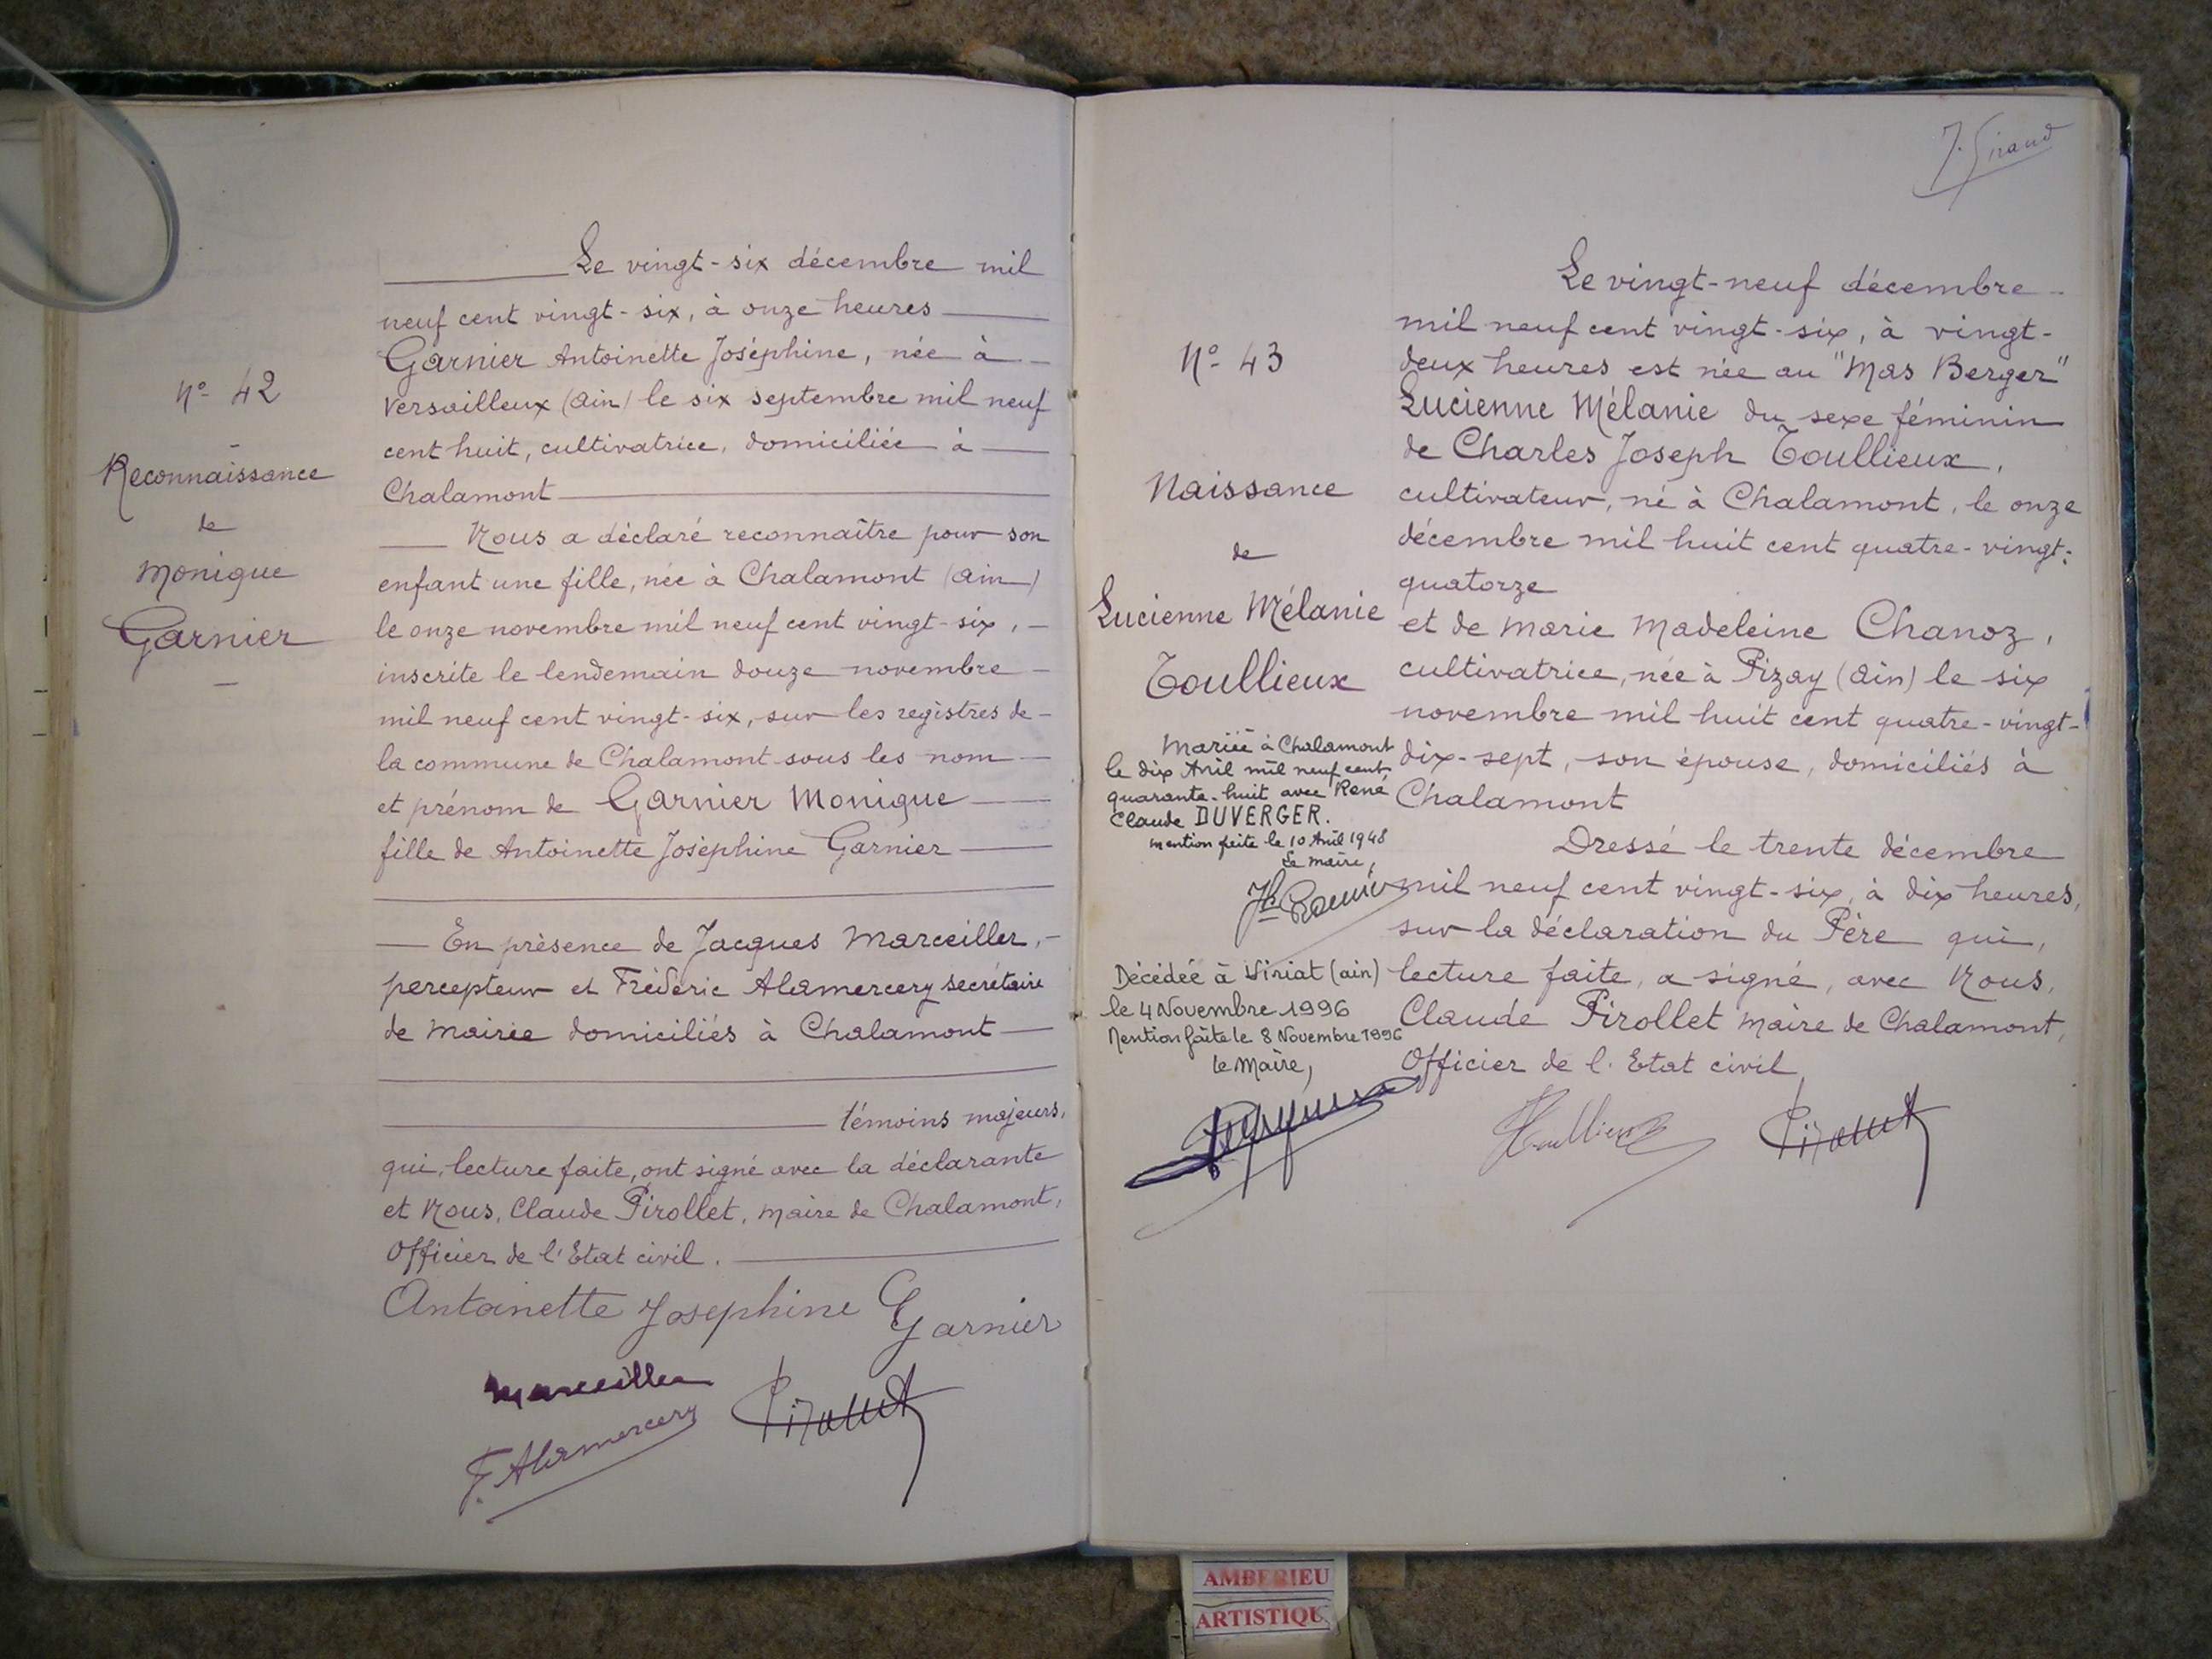 N° 42
Reconnaissance
de
Monique
Garnier
Le vingt-six décembre mil
neuf cent vingt-six, à onze heures
Garnier Antoinette Joséphine, née à
Versailleux (Ain) le six septembre mil neuf
cent huit, cultivatrice, domiciliée à
Chalamont
Nous a déclaré reconnaître pour son
enfant une fille, née à Chalamont (Ain)
le onze novembre mil neuf cent vingt-six,
inscrite le lendemain douze novembre
mil neuf cent vingt-six, sur les registres de
la commune de Chalamont sous les nom
et prénom de Garnier Monique
fille de Antoinette Joséphine Garnier
En présence de Jacques Marceiller,
percepteur et Frédéric Alamercery secrétaire
de Mairie domiciliés à Chalamont
témoins majeurs,
qui, lecture faite, ont signé avec la déclarante
et Nous, Claude Pirollet, Maire de Chalamont,
Officier de l'Etat civil.
Antoinette Josephine Garnier
Marceiller
F. Alamercery Pirollet
J. Giraud
N° 43
Naissance
de
Lucienne Mélanie
Toullieux
Mariée à Chalamont
le dix Avril mil neuf cent
quarante-huit avec René
Claude DUVERGER.
mention faite le 10 Avril 1948
Le maire,
Décédée à Viriat (ain)
le 4 Novembre 1996
Mention faite le 8 Novembre 1996
le Maire,
Le vingt-neuf décembre
mil neuf cent vingt-six, à vingt-
deux heures est née au "Mas Berger"
Lucienne Mélanie du sexe féminin
de Charles Joseph Toullieux,
cultivateur, né à Chalamont, le onze
décembre mil huit cent quatre-vingt-
quatorze
et de Marie Madeleine Chanoz,
cultivatrice, née à Pizay (Ain) le six
novembre mil huit cent quatre-vingt-
dix-sept, son épouse, domiciliés à
Chalamont
Dressé le trente décembre
mil neuf cent vingt-six, à dix heures,
sur la déclaration du Père qui,
lecture faite, a signé, avec Nous,
Claude Pirollet Maire de Chalamont,
Officier de l'Etat civil
Toullieux Pirollet
AMBERIEU
ARTISTIQU